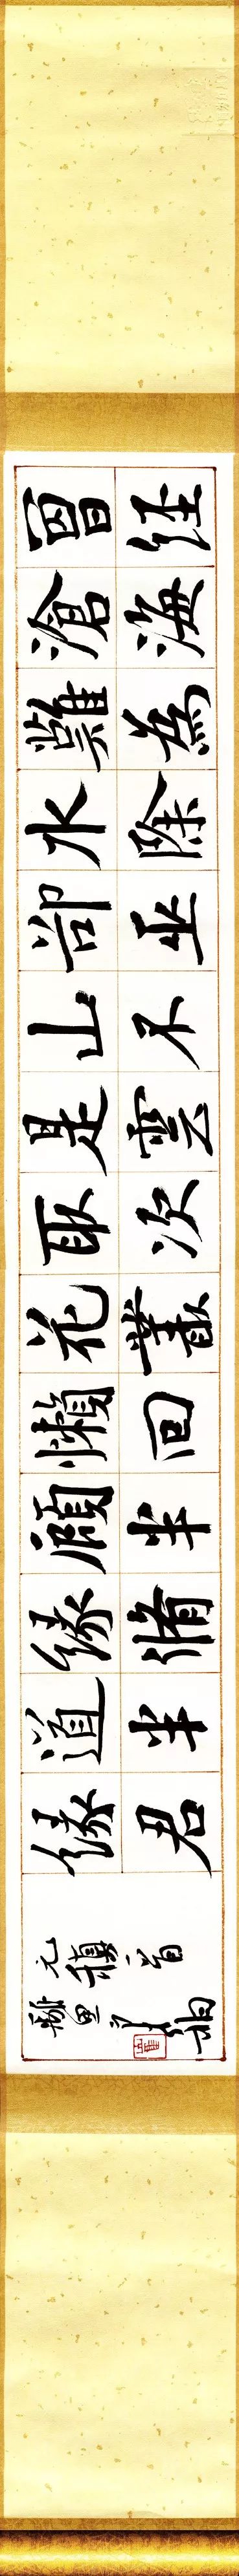 曾經
滄海
難為
水除
卻巫
山不
是雲
取次
花叢
懶回
顧半
緣脩
道半
緣君
元稹一首